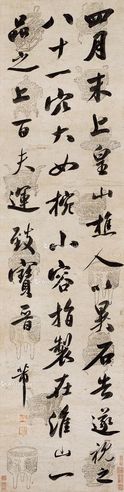 四月末上皇山樵人以異石告遂視之
八十一穴大如椀小容指製在淮山一
品之上百夫運致寶晉 芾